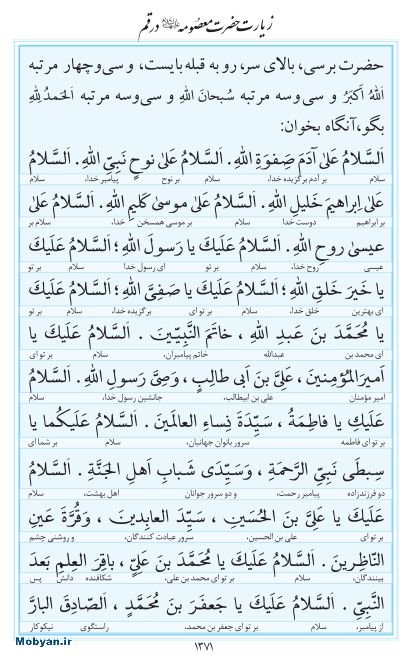 زیارت حضرت معصومه علیهاالسلام در قم
حضرت برسی، بالای سر، رو به قبله بایست، و سی‌وچهار مرتبه
اَللهُ اَکبَرُ و سی‌وسه مرتبه سُبحانَ اللهِ و سی‌وسه مرتبه اَلحَمدُ لِلهِ
بگو، آنگاه بخوان:
اَلسَّلامُ عَلیٰ آدَمَ صَفوَةِ اللهِ. اَلسَّلامُ عَلیٰ نوحٍ نَبِیِّ اللهِ. اَلسَّلامُ
سلام بر آدم برگزیده خدا، سلام بر نوح پیامبر خدا، سلام
عَلیٰ اِبراهیمَ خَلیلِ اللهِ. اَلسَّلامُ عَلیٰ موسیٰ کَلیمِ اللهِ. اَلسَّلامُ عَلیٰ
بر ابراهیم دوست خدا، سلام بر موسی همسخن خدا، سلام بر
عیسیٰ روحِ اللهِ. اَلسَّلامُ عَلَیكَ یا رَسولَ اللهِ؛ اَلسَّلامُ عَلَیكَ
عیسی روح خدا، سلام بر تو ای رسول خدا سلام بر تو
یا خَیرَ خَلقِ اللهِ؛ اَلسَّلامُ عَلَیكَ یا صَفِیَّ اللهِ؛ اَلسَّلامُ عَلَیكَ
ای بهترین خلق خدا، سلام بر تو ای برگزیده خدا، سلام بر تو
یا مُحَمَّدَ بنَ عَبدِ اللهِ ، خاتَمَ النَّبِیّینَ . اَلسَّلامُ عَلَیكَ یا
ای محمد بن عبدالله خاتم پیامبران، سلام بر تو ای
اَمیرَالمُؤمِنینَ ، عَلِیَّ بنَ اَبی طالِبٍ ، وَصِیَّ رَسولِ اللهِ. اَلسَّلامُ
امیر مؤمنان علی بن ابیطالب، جانشین رسول خدا، سلام
عَلَیكِ یا فاطِمَةُ ، سَیِّدَةَ نِساءِ العالَمینَ. اَلسَّلامُ عَلَیکُما یا
بر تو ای فاطمه سرور بانوان جهانیان، سلام بر شما ای
سِبطَی نَبِیِّ الرَّحمَةِ ، وَسَیِّدَی شَبابِ اَهلِ الجَنَّةِ . اَلسَّلامُ
دو فرزندزاده پیامبر رحمت، و دو سرور جوانان اهل بهشت، سلام
عَلَیكَ یا عَلِیَّ بنَ الحُسَینِ ، سَیِّدَ العابِدینَ ، وَقُرَّةَ عَینِ
بر تو ای علی بن الحسین، سرور عبادت کنندگان، و روشنی چشم
النّاظِرینَ . اَلسَّلامُ عَلَیكَ یا مُحَمَّدَ بنَ عَلِیٍّ ، باقِرَ العِلمِ بَعدَ
بینندگان، سلام بر تو ای محمد بن علی، شکافنده دانش پس
النَّبِیِّ . اَلسَّلامُ عَلَیكَ یا جَعفَرَ بنَ مُحَمَّدٍ ، اَلصّادِقَ البارَّ
از پیامبر، سلام بر تو ای جعفر بن محمد، راستگوی نیکوکار
۱۳۷۱
Mobyan.ir